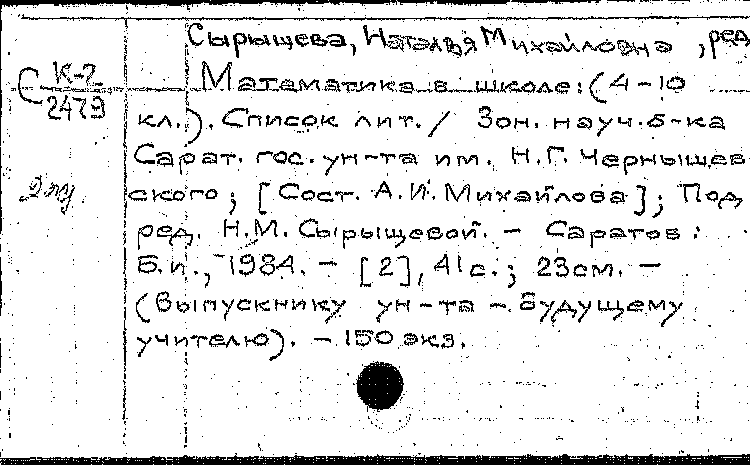 Сырыщева, Наталья Михайловна, ред.
С К-2
2479
Математика в школе: (4-10
кл.). Список лит. / Зон. науч. б-ка
Сарат. гос. ун-та им. Н.Г. Чернышев
ского; [Сост. А.И. Михайлова]; Под
2 жу
ред. Н.М. Сырыщевой. - Саратов:
Б.и., 1984. - [2], 41 с.; 23 см. -
(Выпускнику ун-та - будущему
учителю). - 150 экз.